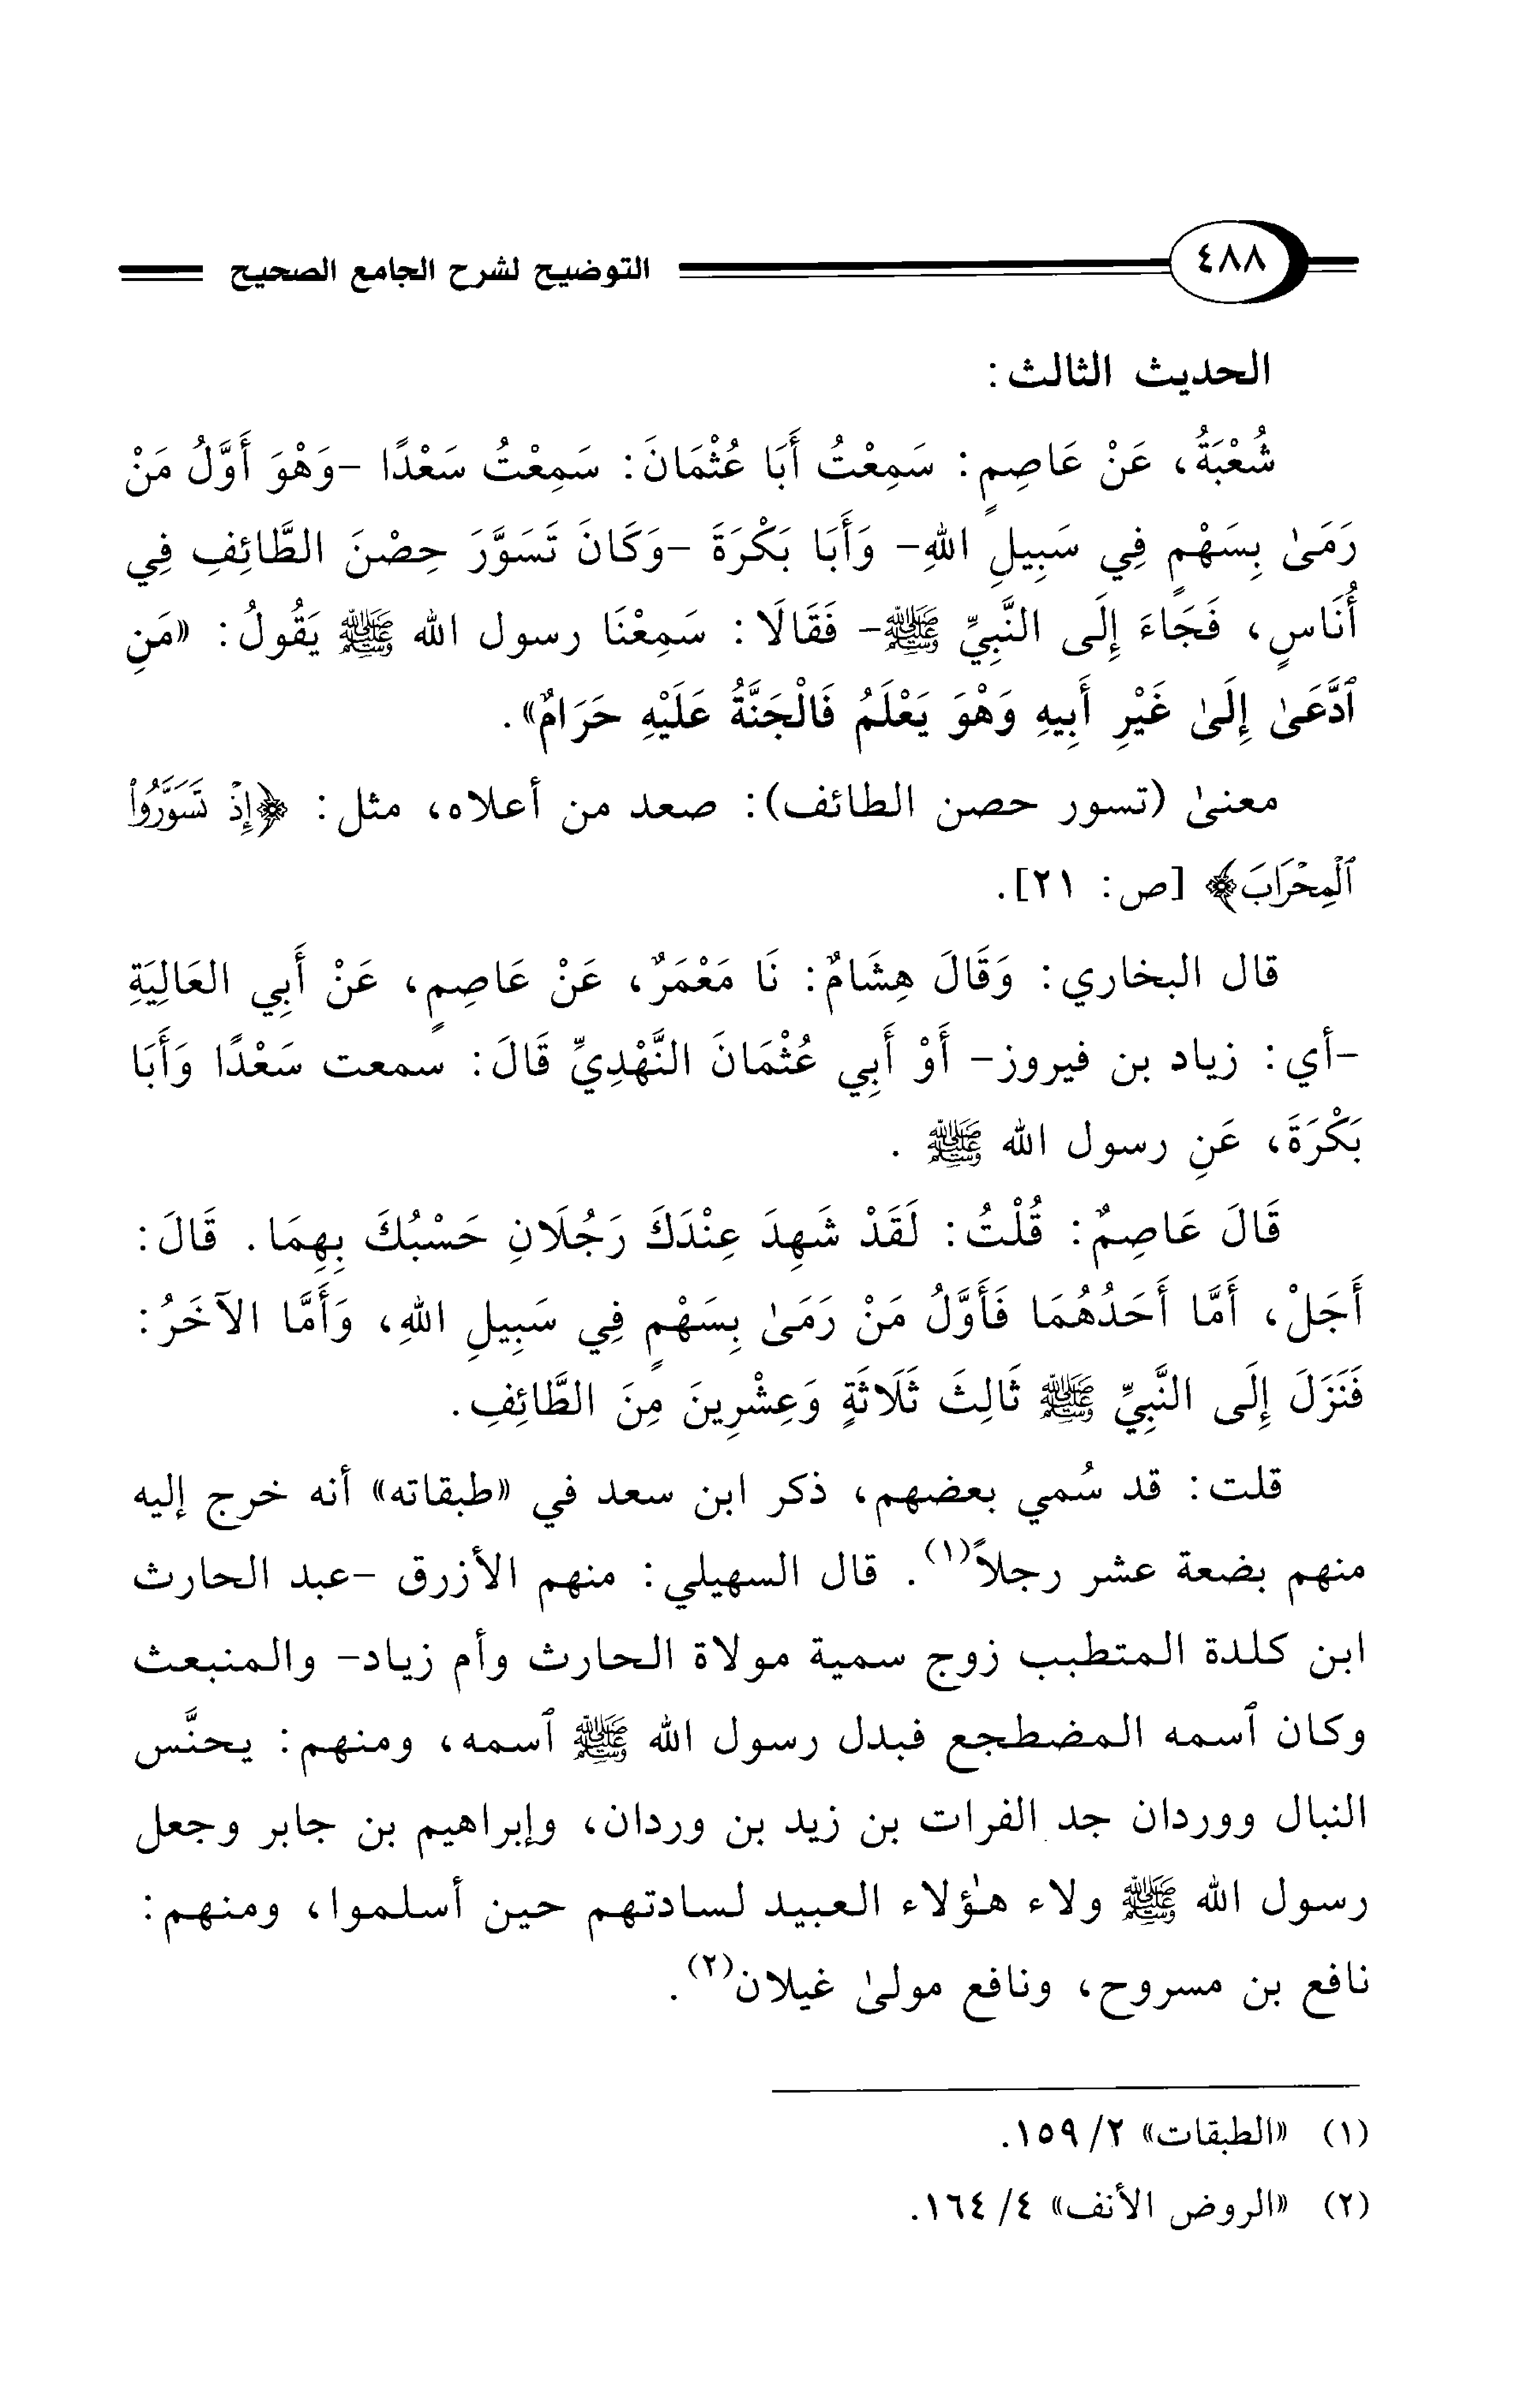 ٤٨٨ التوضيح لشرح الجامع الصحيح
الحديث الثالث:
شُعْبَةُ، عَنْ عَاصِمٍ: سَمِعْتُ أَبَا عُثْمَانَ: سَمِعْتُ سَعْدًا -وَهْوَ أَوَّلُ مَنْ
رَمَىٰ بِسَهْمٍ فِي سَبِيلِ اللهِ- وَأَبَا بَكْرَةَ -وَكَانَ تَسَوَّرَ حِصْنَ الطَّائِفِ فِي
أُنَاسٍ، فَجَاءَ إِلَى النَّبِيِّ ﷺ- فَقَالَا: سَمِعْنَا رسول الله ﷺ يَقُولُ: «مَنِ
ٱدَّعَىٰ إِلَىٰ غَيْرِ أَبِيهِ وَهْوَ يَعْلَمُ فَالْجَنَّةُ عَلَيْهِ حَرَامٌ».
معنىٰ (تسور حصن الطائف): صعد من أعلاه، مثل: ﴿إِذْ تَسَوَّرُواْ
ٱلْمِحْرَابَ﴾ [ص: ٢١].
قال البخاري: وَقَالَ هِشَامٌ: نَا مَعْمَرٌ، عَنْ عَاصِمٍ، عَنْ أَبِي العَالِيَةِ
-أي: زياد بن فيروز- أَوْ أَبِي عُثْمَانَ النَّهْدِيِّ قَالَ: سمعت سَعْدًا وَأَبَا
بَكْرَةَ، عَنِ رسول الله ﷺ .
قَالَ عَاصِمٌ: قُلْتُ: لَقَدْ شَهِدَ عِنْدَكَ رَجُلَانِ حَسْبُكَ بِهِمَا. قَالَ:
أَجَلْ، أَمَّا أَحَدُهُمَا فَأَوَّلُ مَنْ رَمَىٰ بِسَهْمٍ فِي سَبِيلِ اللهِ، وَأَمَّا الآخَرُ:
فَنَزَلَ إِلَى النَّبِيِّ ﷺ ثَالِثَ ثَلَاثَةٍ وَعِشْرِينَ مِنَ الطَّائِفِ.
قلت: قد سُمي بعضهم، ذكر ابن سعد في «طبقاته» أنه خرج إليه
منهم بضعة عشر رجلاً(١). قال السهيلي: منهم الأزرق -عبد الحارث
ابن كلدة المتطبب زوج سمية مولاة الحارث وأم زياد- والمنبعث
وكان ٱسمه المضطجع فبدل رسول الله ﷺ ٱسمه، ومنهم: يحنَّس
النبال ووردان جد الفرات بن زيد بن وردان، وإبراهيم بن جابر وجعل
رسول الله ﷺ ولاء هٰؤلاء العبيد لسادتهم حين أسلموا، ومنهم:
نافع بن مسروح، ونافع مولىٰ غيلان(٢).
(١) «الطبقات» ٢/ ١٥٩.
(٢) «الروض الأنف» ٤/ ١٦٤.